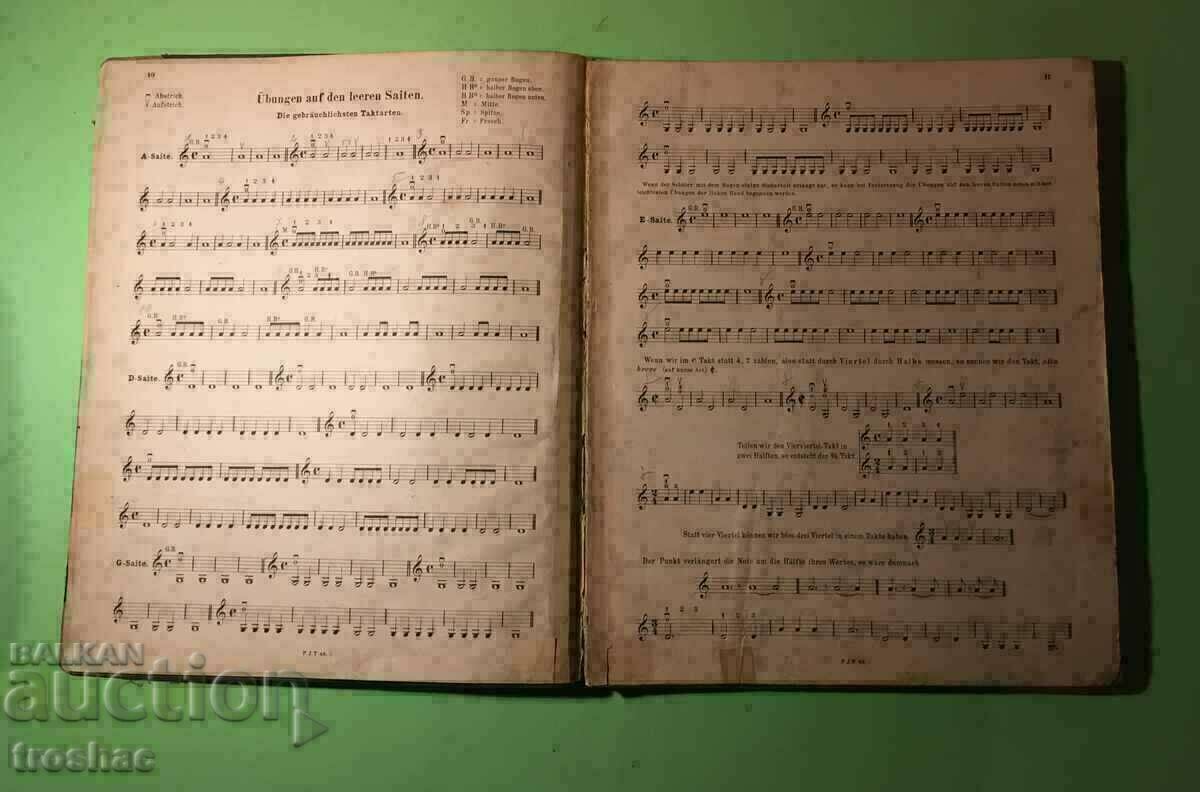 10
Abstrich.
Aufstrich.
Übungen auf den leeren Saiten.
Die gebräuchlichsten Taktarten.
G.B. = ganzer Bogen.
H.Bº = halber Bogen oben.
H.Bu = halber Bogen unten.
M = Mitte.
Sp = Spitze.
Fr. = Frosch.
G.B. 1 2 3 4
A-Saite.
1 2 3 4
1 2 3 4
1 2 3 4
1 2 3 4
M
G.B.
G.B. H.Bº
G.B.
G.B.
G.B.
D-Saite.
G.B.
G-Saite.
G.B.
11
Wenn der Schüler mit dem Bogen einige Sicherheit erlangt hat, so kann bei Fortsetzung der Übungen auf den leeren Saiten schon mit den
leichtesten Übungen der linken Hand begonnen werden.
E-Saite.
G.B.
G.B.
Wenn wir im C Takt statt 4, 2 zählen, also statt durch Viertel durch Halbe messen, so nennen wir den Takt, alla
breve (auf kurze Art) ¢.
1 2 3 4
1 2 1 2
Teilen wir den Vierviertel-Takt in
zwei Hälften, so entsteht der 2/4 Takt.
Statt vier Viertel können wir blos drei Viertel in einem Takte haben.
Der Punkt verlängert die Note um die Hälfte ihres Wertes, es wäre demnach
1 2 3
BALKAN
auction
troshac